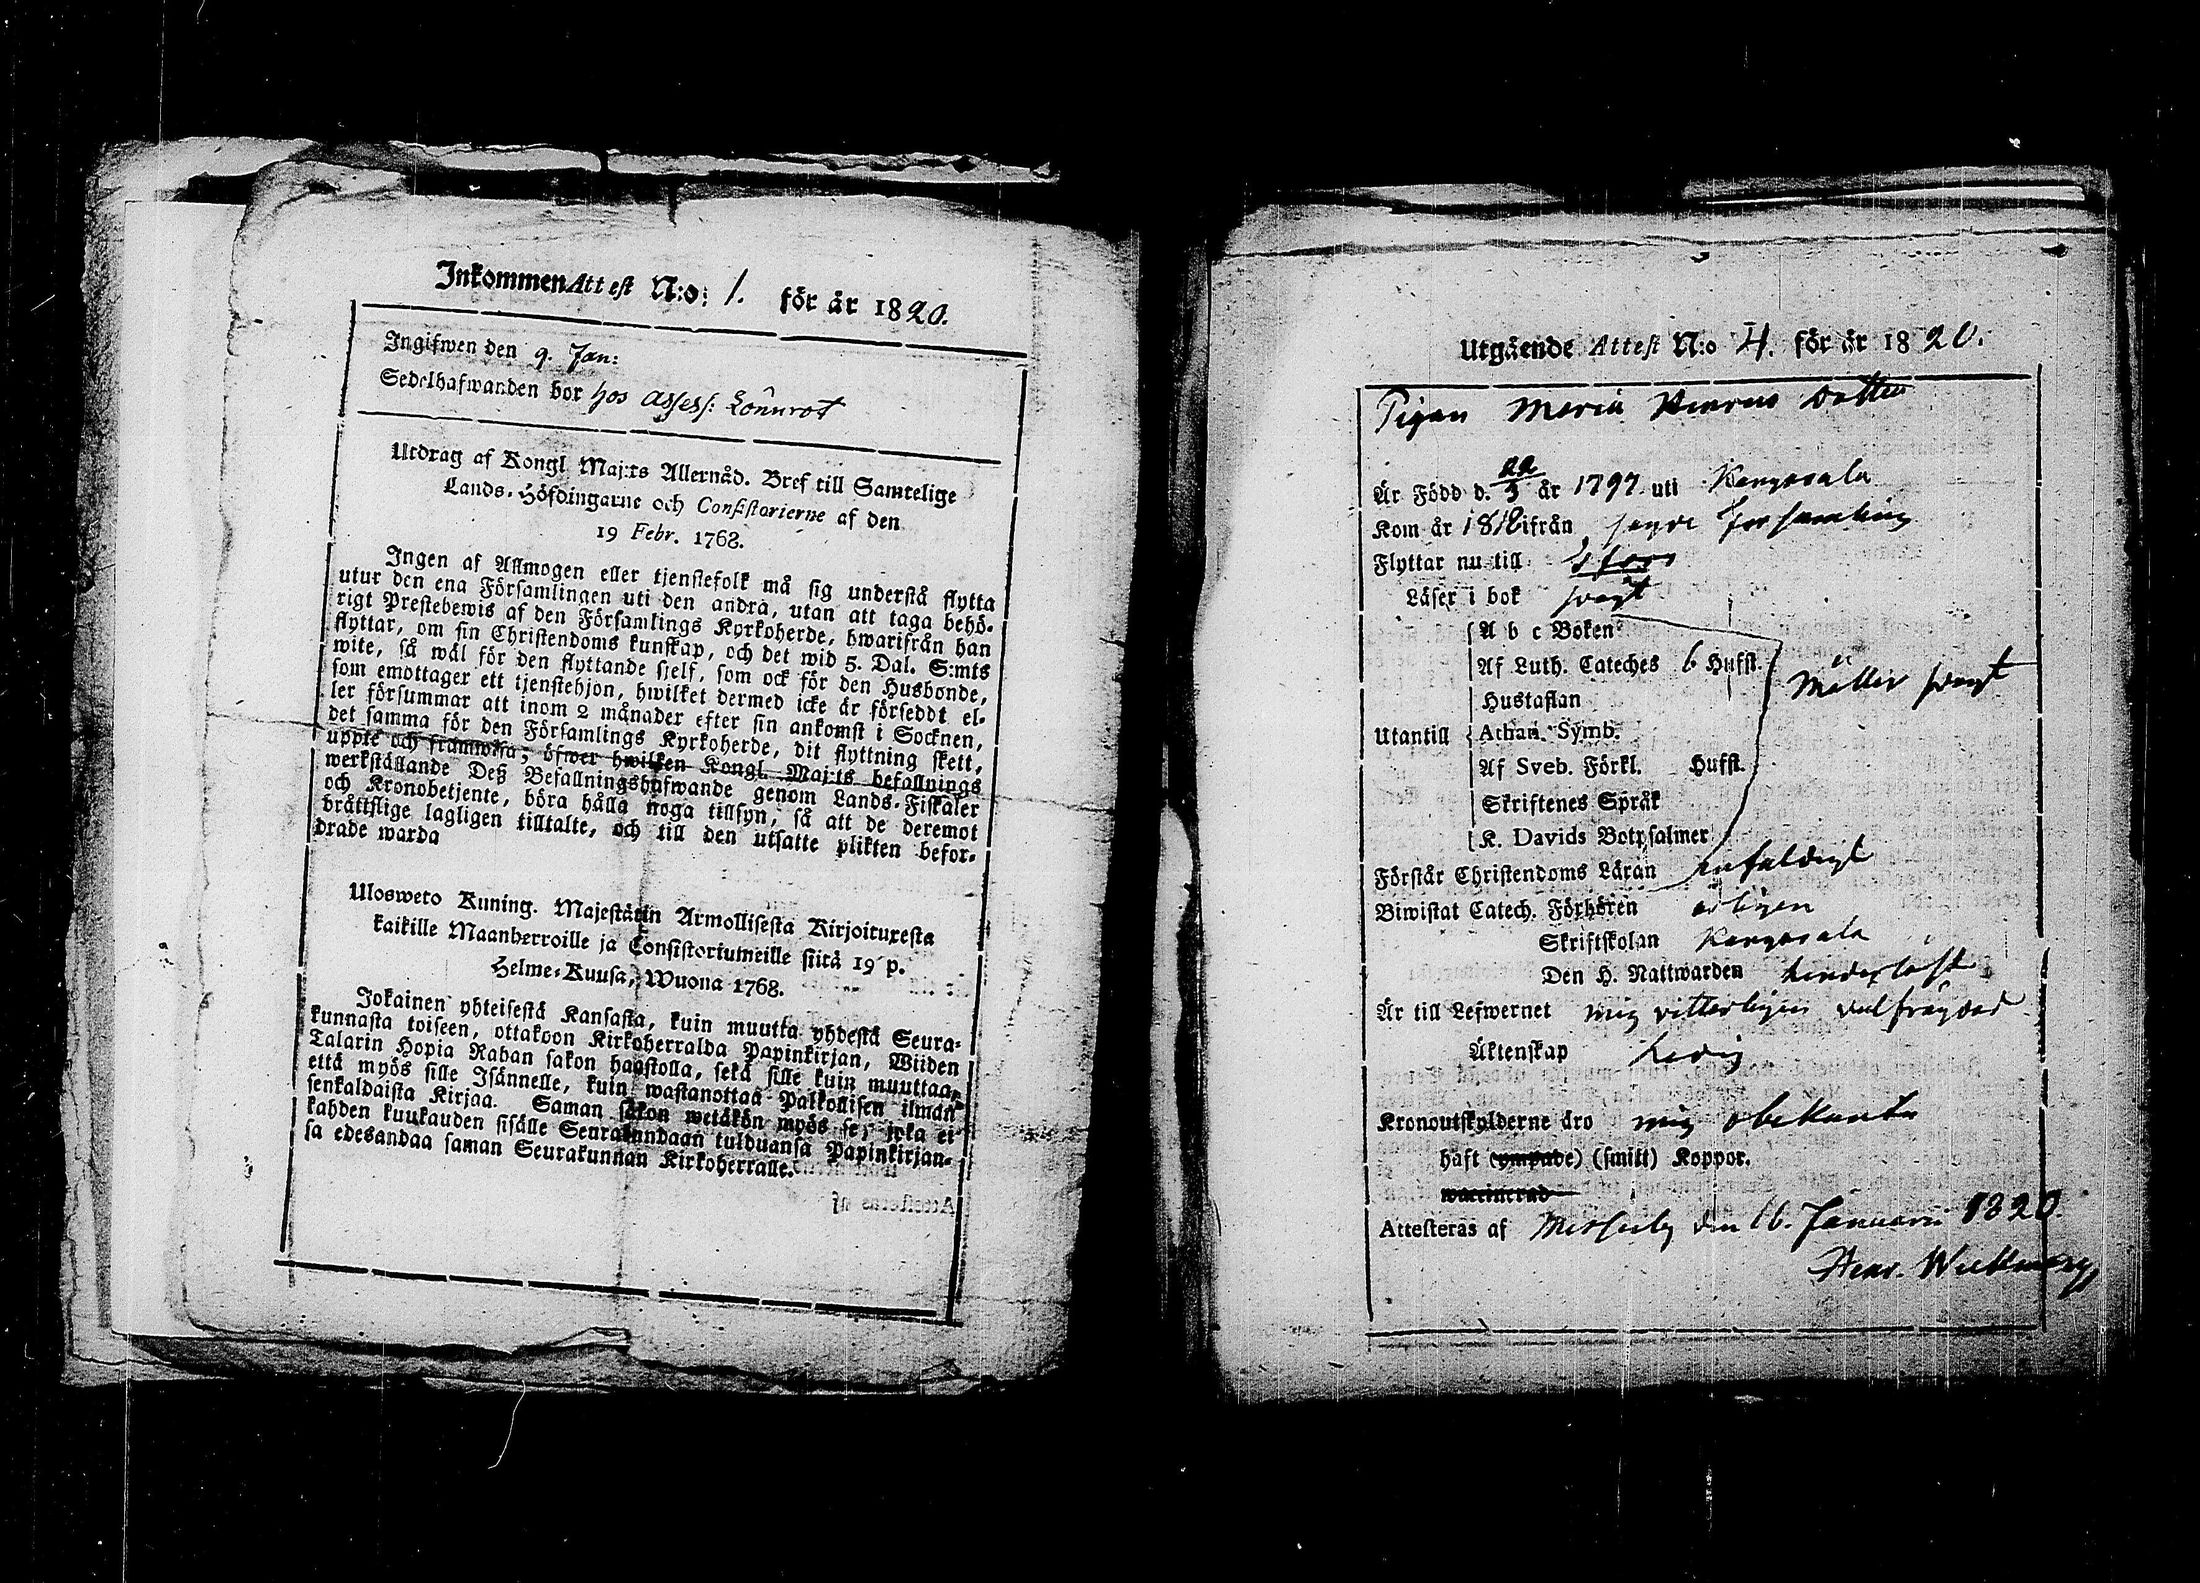 Inkommen Attest N:o: 1. för år 1820.
Ingifwen den 9. Jan:
Sedelhafwanden bor hos Assess: Lönnrot
Utdrag af Kongl Maj:ts Allernåd. Bref till Samtelige
Lands-Höfdingarne och Consistorierne af den
19 Febr. 1768.
Ingen af Allmogen eller tjenstefolk må sig understå flytta
utur den ena Församlingen uti den andra, utan att taga behö-
rigt Prestebewis af den Församlings Kyrkoherde, hwarifrån han
flyttar, om sin Christendoms kunskap, och det wid 5. Dal. S:mts
wite, så wäl för den flyttande sjelf, som ock för den Husbonde,
som emottager ett tjenstehjon, hwilket dermed icke är försedt el-
ler försummar att inom 2 månader efter sin ankomst i Socknen,
det samma för den Församlings Kyrkoherde, dit flyttning skett,
uppte och framwisa; öfwer hwilken Kongl. Maj:ts befallnings
werkställande Deß Befallningshafwande genom Lands-Fiskaler
och Kronobetjente, böra hålla noga tillsyn, så att de deremot
bråttslige lagligen tilltalte, och till den utsatte plikten befor-
drade warda
Ulosweto Kuning. Majestätin Armollisesta Kirjoituxesta
kaikille Maanherroille ja Consistoriumeille siitä 19 p.
Helme-Kuusa, Wuona 1768.
Jokainen yhteisestä Kansasta, kuin muutta yhdestä Seura-
kunnasta toiseen, ottakoon Kirkoherralda Papinkirjan, Wiiden
Talarin Hopia Rahan sakon haastolla, sekä sille kuin muuttaa,
että myös sille Isännelle, kuin wastanottaa Palkollisen ilman
senkaldaista Kirjaa. Saman sakon wetäkön myös se, joka ei
kahden kuukauden sisälle Seurakundaan tulduansa Papinkirjan-
sa edesandaa saman Seurakunnan Kirkoherralle.
Utgående Attest N:o 4. för år 1820.
Pigan Maria Henrics dotter
Är Född d. 22/3 år 1797 uti Kangasala
Kom år 1818 ifrån sagde Församling
Flyttar nu till
Läser i bok svagt
A b c Boken
Af Luth. Cateches 6 Hufst.
Hustaflan
Utantill Athan. Symb.
Af Sveb. Förkl. Hufst.
Skriftenes Språk
K. Davids Botpsalmer
svagt
Förstår Christendoms Läran enfaldigt
Biwistat Catech. Förhören årligen
Skriftskolan Kangasala
Den H. Nattwarden
Är till Lefwernet mig vitterligen välfrägdad
Äktenskap Ledig
Kronoutskylderne äro mig obekanta
haft (ympade) (smitt) Koppor.
waccinerad
Attesteras af Messuby den 16. Januarii 1820.
Henr. Wickman